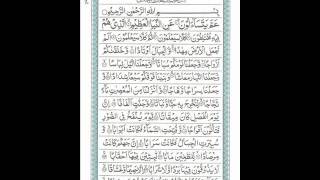 بِسْمِ اللهِ الرَّحْمٰنِ الرَّحِيْمِ
عَمَّ يَتَسَآءَلُوْنَ عَنِ النَّبَاِ الْعَظِيْمِ الَّذِيْ هُمْ
فِيْهِ مُخْتَلِفُوْنَ كَلَّا سَيَعْلَمُوْنَ ثُمَّ كَلَّا سَيَعْلَمُوْنَ اَلَمْ
نَجْعَلِ الْاَرْضَ مِهٰدًا وَّالْجِبَالَ اَوْتَادًا وَّخَلَقْنٰكُمْ
اَزْوَاجًا وَّجَعَلْنَا نَوْمَكُمْ سُبَاتًا وَّجَعَلْنَا الَّيْلَ لِبَاسًا
وَّجَعَلْنَا النَّهَارَ مَعَاشًا وَّبَنَيْنَا فَوْقَكُمْ سَبْعًا شِدَادًا
وَّجَعَلْنَا سِرَاجًا وَّهَّاجًا وَّاَنْزَلْنَا مِنَ الْمُعْصِرٰتِ مَآءً
ثَجَّاجًا لِّنُخْرِجَ بِهٖ حَبًّا وَّنَبَاتًا وَّجَنّٰتٍ اَلْفَافًا اِنَّ
يَوْمَ الْفَصْلِ كَانَ مِيْقَاتًا يَّوْمَ يُنْفَخُ فِي الصُّوْرِ
فَتَاْتُوْنَ اَفْوَاجًا وَّفُتِحَتِ السَّمَآءُ فَكَانَتْ اَبْوَابًا
وَّسُيِّرَتِ الْجِبَالُ فَكَانَتْ سَرَابًا اِنَّ جَهَنَّمَ كَانَتْ
مِرْصَادًا لِّلطَّاغِيْنَ مَاٰبًا لّٰبِثِيْنَ فِيْهَآ اَحْقَابًا